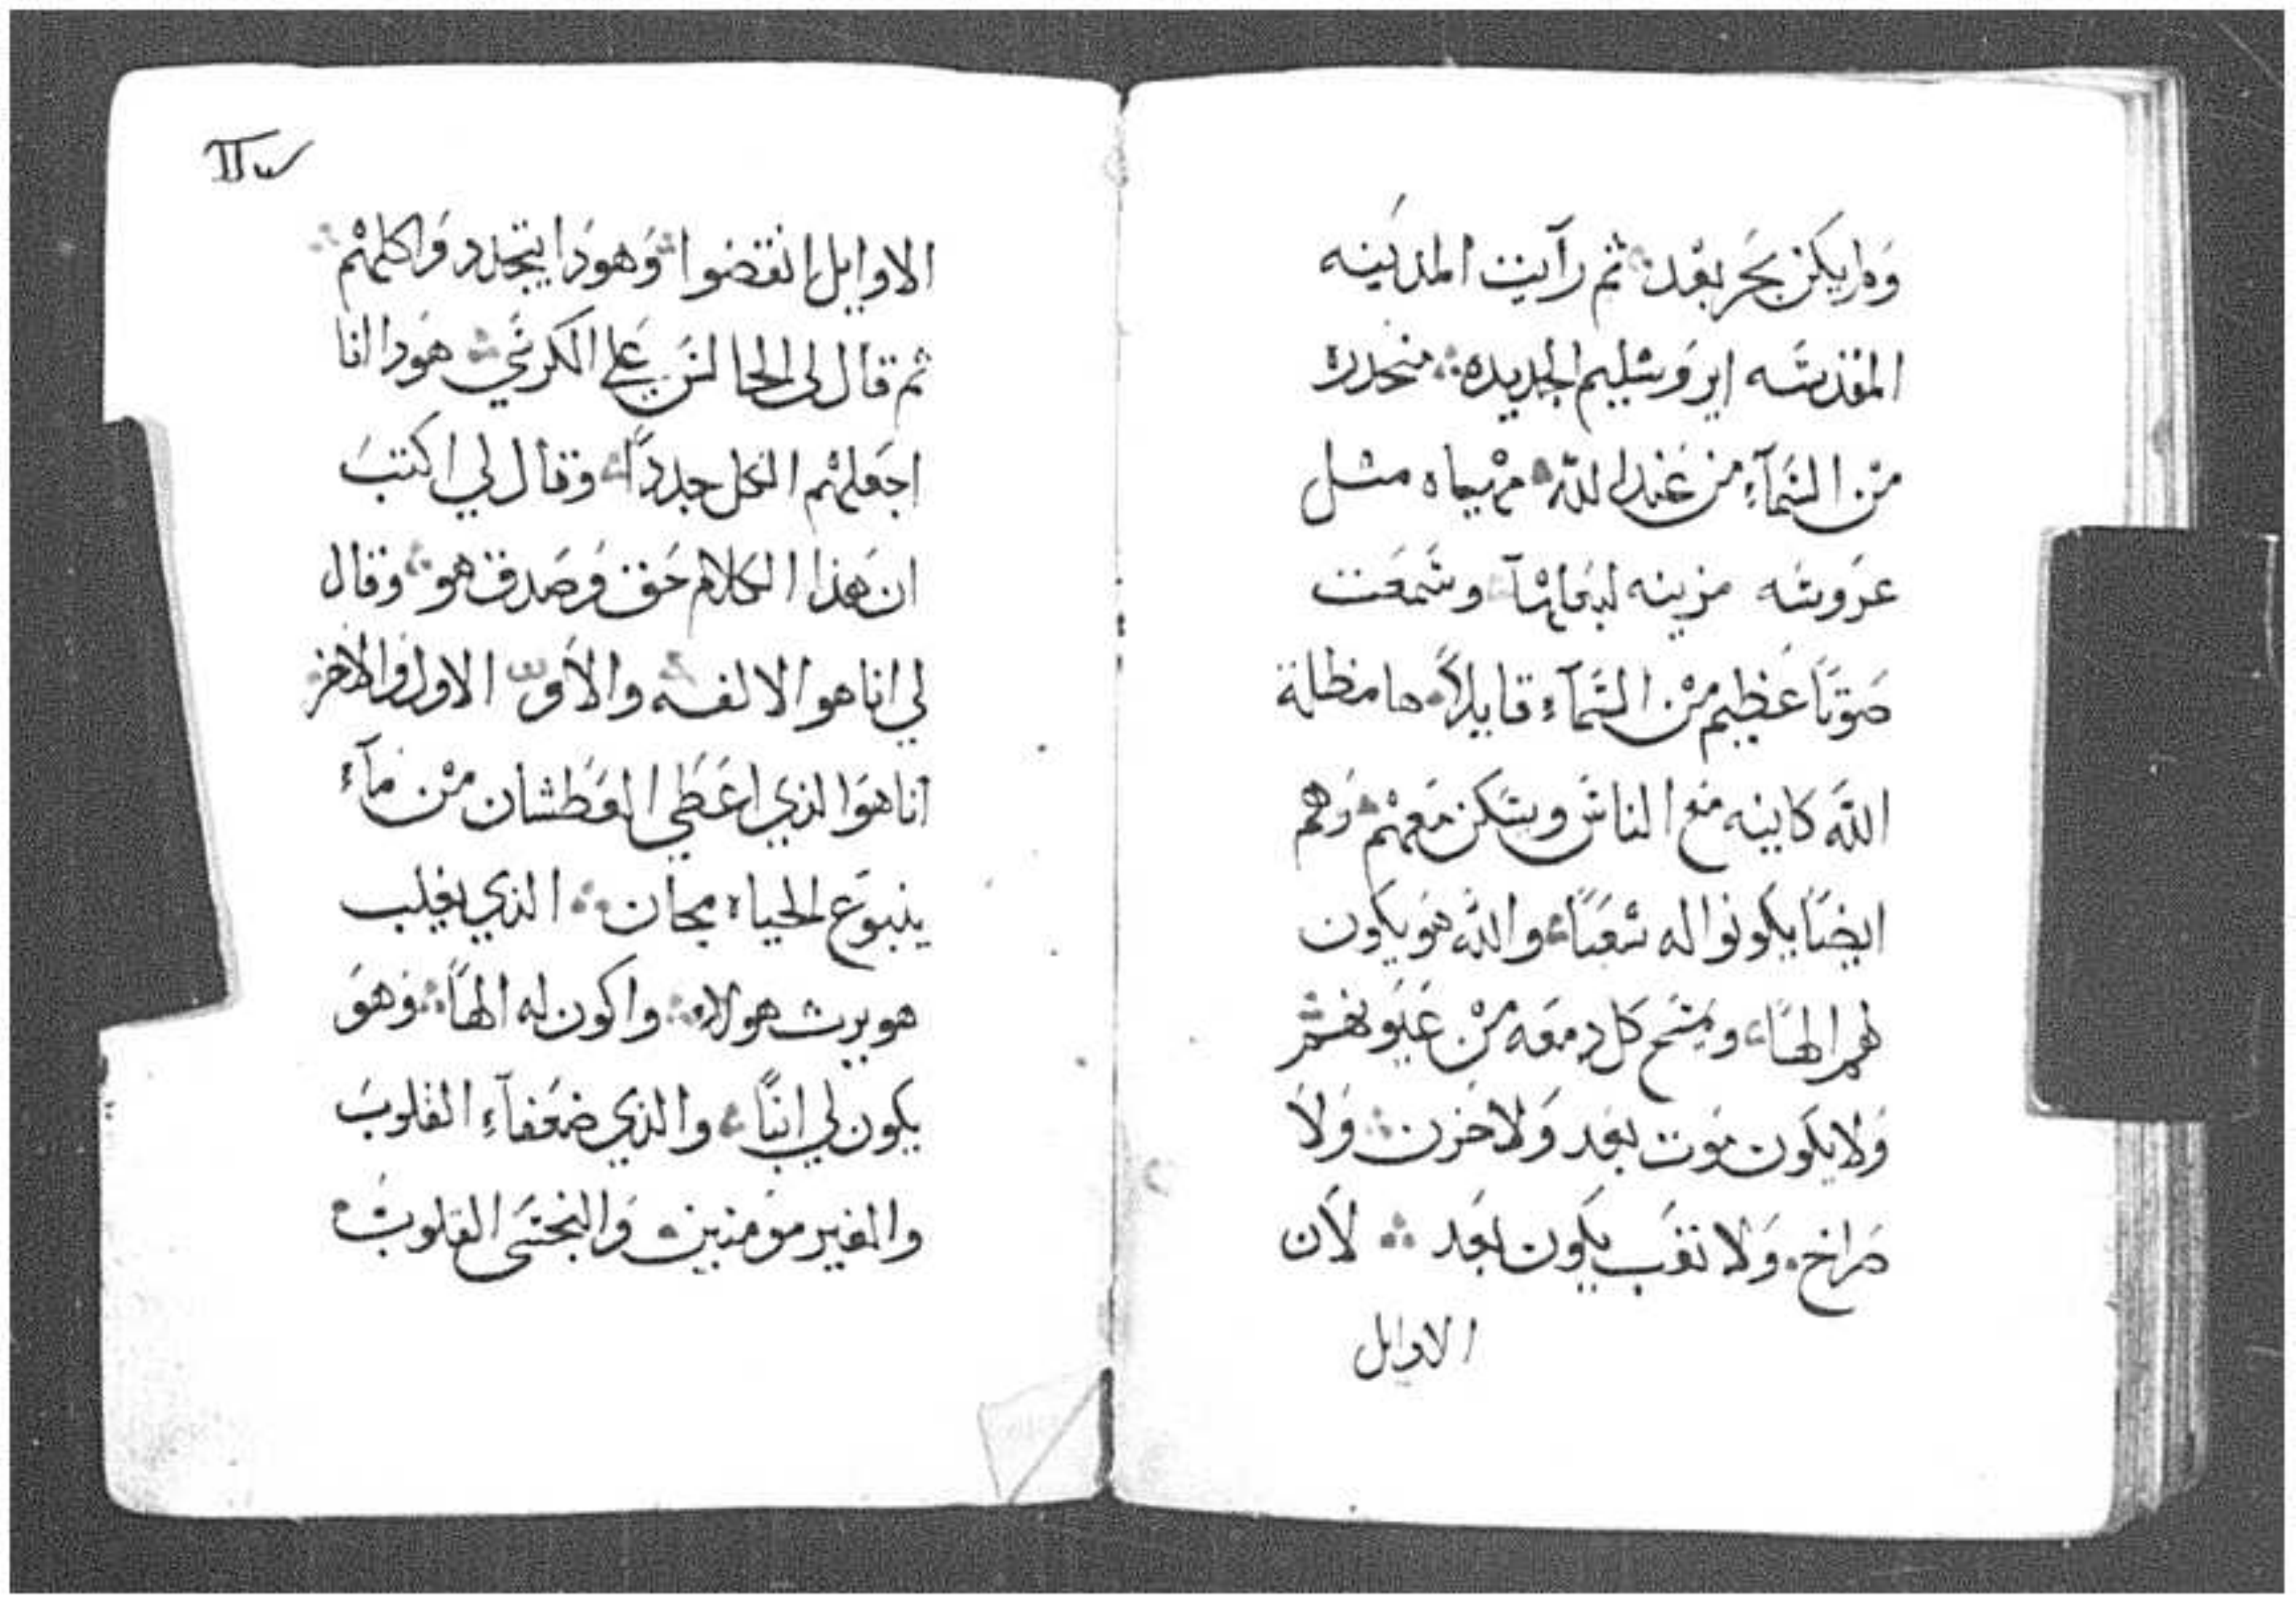 ولم يكن بحر بعد ثم رآيت المدينه
المقدسه ايروسليم الجديده منحدره
من السمآء من عند الله مهيياه مثل
عروسه مزينه لبعلها وسمعت
صوتًا عظيم من السمآء قايلاً ها مظلة
الله كاينه مع الناس ويسكن معهم وهم
ايضًا يكونوا له شعبًا والله هو يكون
لهم الهًا ويمسح كل دمعه من عيونهم
ولا يكون موت بعد ولا حزن ولا
صراخ ولا تعب يكون بعد لأن
الاوايل
الاوايل انقضوا وهودا يتجدد واكلهم
ثم قال لي الجالس علي الكرسي هودا انا
اجعلهم الكل جددًا وقال لي اكتب
ان هذا الكلام حق وصدق هو وقال
لي انا هو الالفه والأو الاول والاخر
انا هو الذي اعطي العطشان من مآء
ينبوع الحياه مجان الذي يغلب
هو يرث هولاء واكون له الهًا وهو
يكون لي ابنًا والذي ضعفآء القلوب
والغير مومنين والنجسى القلوب